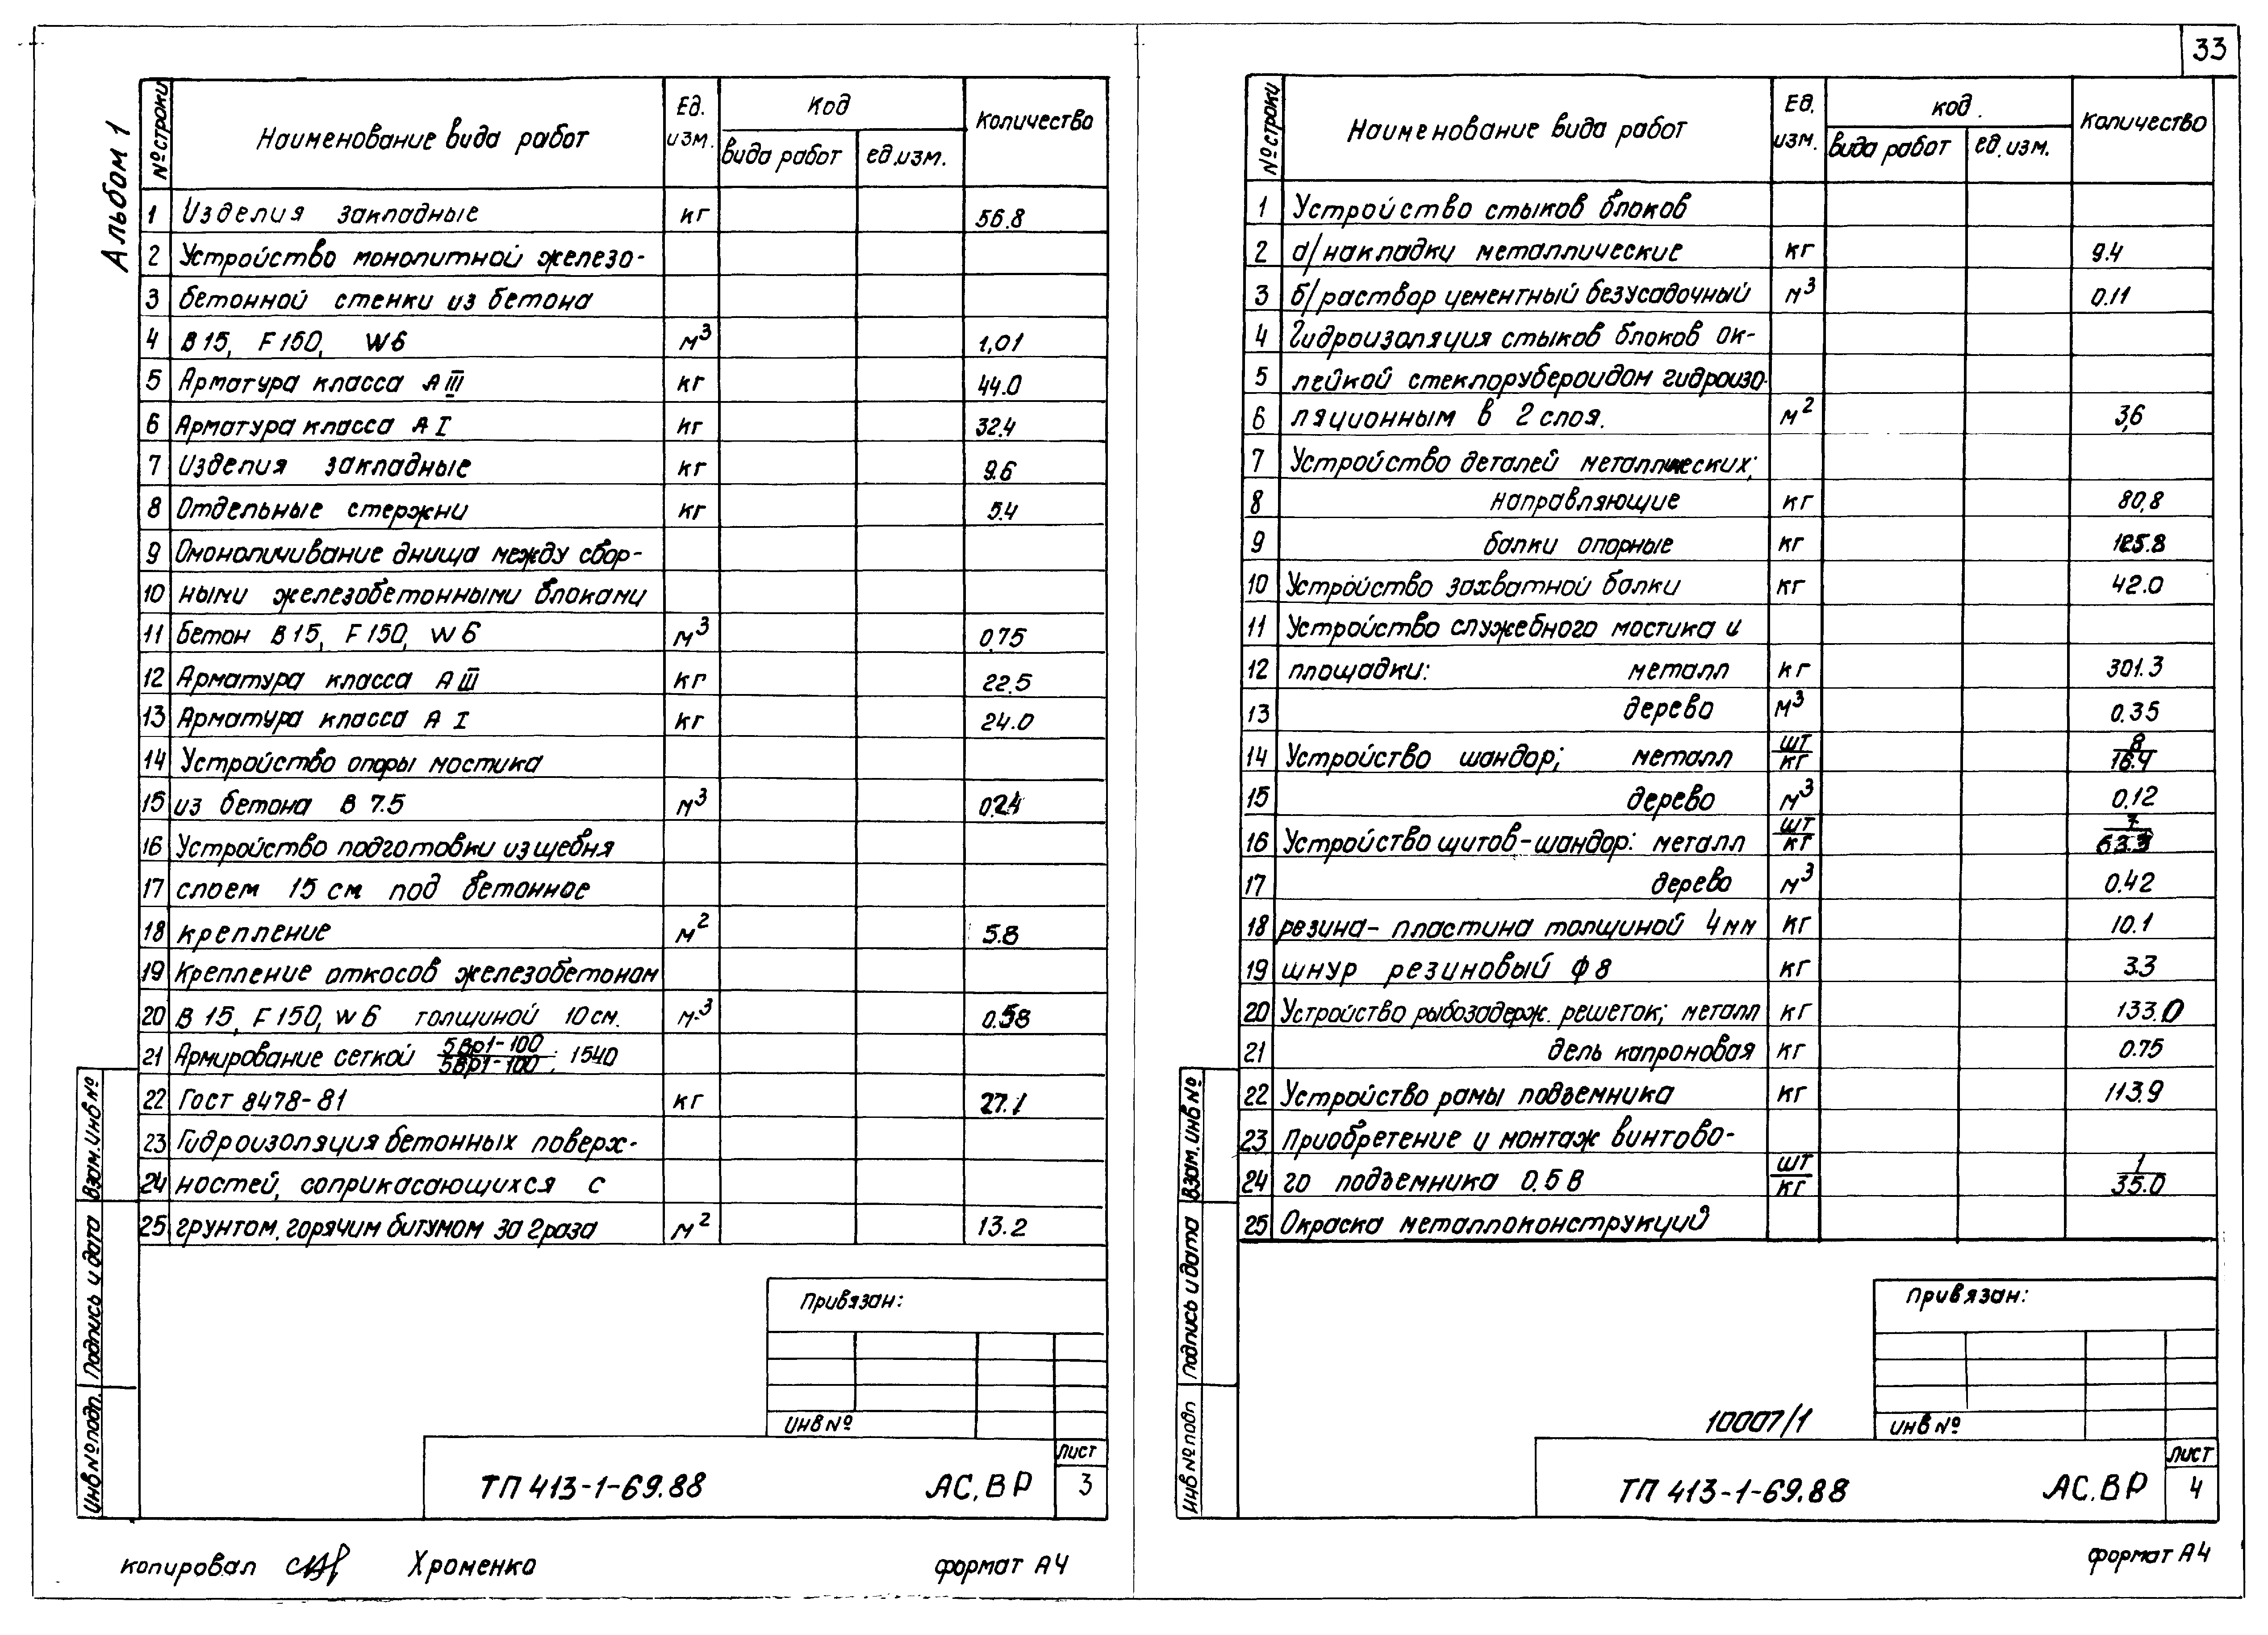 33
Альбом 1
№ строки Наименование вида работ Ед. изм. Код вида работ ед.изм. Количество
1 Изделия закладные кг 56.8
2 Устройство монолитной железо-
3 бетонной стенки из бетона
4 В15, F150, W6 м³ 1,01
5 Арматура класса А III кг 44.0
6 Арматура класса А I кг 32.4
7 Изделия закладные кг 9.6
8 Отдельные стержни кг 5.4
9 Омоноличивание днища между сбор-
10 ными железобетонными блоками
11 бетон В15, F150, W6 м³ 0.75
12 Арматура класса А III кг 22.5
13 Арматура класса А I кг 24.0
14 Устройство опоры мостика
15 из бетона В 7.5 м³ 0.24
16 Устройство подготовки из щебня
17 слоем 15 см под бетонное
18 крепление м² 5.8
19 Крепление откосов железобетоном
20 В 15, F150, W6 толщиной 10см. м³ 0.58
21 Армирование сеткой 5Вр1-100/5Вр1-100 ; 1540
22 Гост 8478-81 кг 27.1
23 Гидроизоляция бетонных поверх-
24 ностей, соприкасающихся с
25 грунтом, горячим битумом за 2 раза м² 13.2
Привязан:
Инв №
ТП 413-1-69.88 АС.ВР Лист 3
Инв № подп. Подпись и дата Взам. инв №
копировал Хроменко формат А4
№ строки Наименование вида работ Ед. изм. код. вида работ ед.изм. Количество
1 Устройство стыков блоков
2 а/ накладки металлические кг 9.4
3 б/ раствор цементный безусадочный м³ 0.11
4 Гидроизоляция стыков блоков ок-
5 лейкой стеклорубероидом гидроизо-
6 ляционным в 2 слоя. м² 3,6
7 Устройство деталей металлических;
8 направляющие кг 80,8
9 балки опорные кг 125.8
10 Устройство захватной балки кг 42.0
11 Устройство служебного мостика и
12 площадки: металл кг 301.3
13 дерево м³ 0.35
14 Устройство шандор; металл шт/кг 8/16.4
15 дерево м³ 0.12
16 Устройство щитов-шандор: металл шт/кг 7/63.3
17 дерево м³ 0.42
18 резина- пластина толщиной 4мм кг 10.1
19 шнур резиновый ф8 кг 3.3
20 Устройство рыбозадерж. решеток; металл кг 133.0
21 дель капроновая кг 0.75
22 Устройство рамы подъемника кг 113.9
23 Приобретение и монтаж винтово-
24 го подъемника 0.5В шт/кг 1/35.0
25 Окраска металлоконструкций
Привязан:
10007/1
Инв №
ТП 413-1-69.88 АС.ВР Лист 4
Инв № подп Подпись и дата Взам. инв №
формат А4